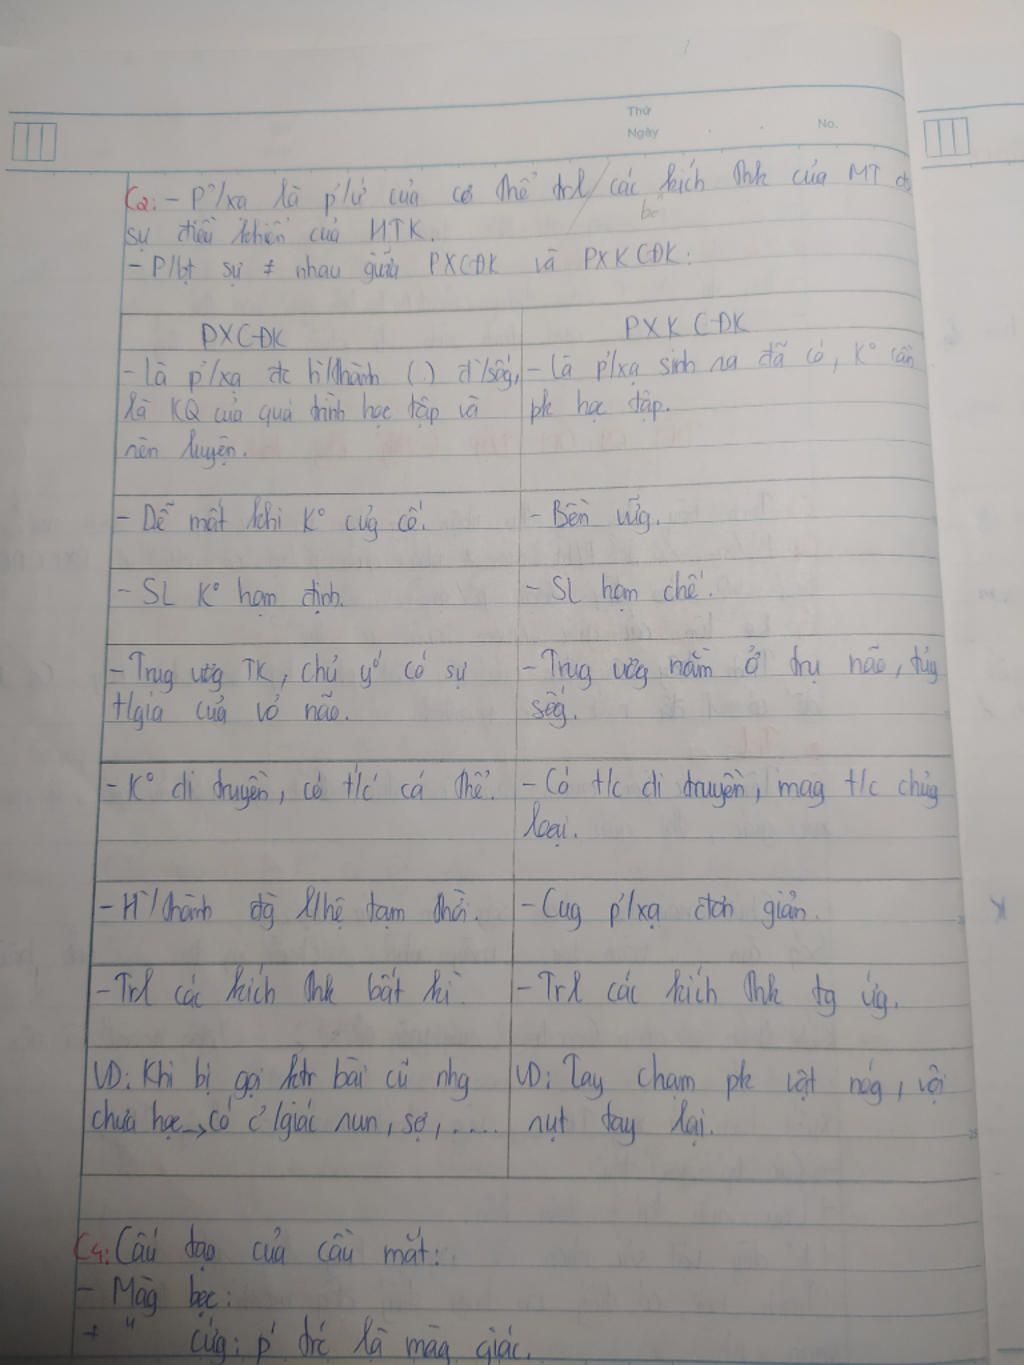 Thứ
Ngày
No.
C2: - P'/xạ là p'/ứ của cơ thể trl các kích thk của MT dc
sự điều khiển của HTK.
- P/bt sự ≠ nhau giữa PXCĐK và PXKCĐK:
PXCĐK
PXKCĐK
- Là p'/xạ đc h`/thành (.) đ`/sốg,
là KQ của quá trình học tập và
rèn luyện.
- Là p'/xạ sinh ra đã có, K° cần
pk học tập.
- Dễ mất khi K° củg cố.
- Bền vữg.
- SL K° hạn định.
- SL hạn chế.
- Trug ươg TK, chủ yó có sự
t/gia của vỏ não.
- Trug ươg nằm ở trụ não, tủy
sốg.
- K° di truyền, có t/c cá thể.
- Có t/c di truyền, mag t/c chủg
loại.
- H`/thành đg l/hệ tạm thời.
- Cug p'/xạ đơn giản.
- Trl các kích thk bất kì.
- Trl các kích thk tg ứg.
VD: Khi bị gọi ktr bài cũ nhg
chưa học → có c'/giác run, sợ, ....
VD: Tay chạm pk vật nóg, vội
rụt tay lại.
C4: Cấu tạo của cầu mắt:
- Màg bọc:
+ " cứg: p' trc là màg giác.